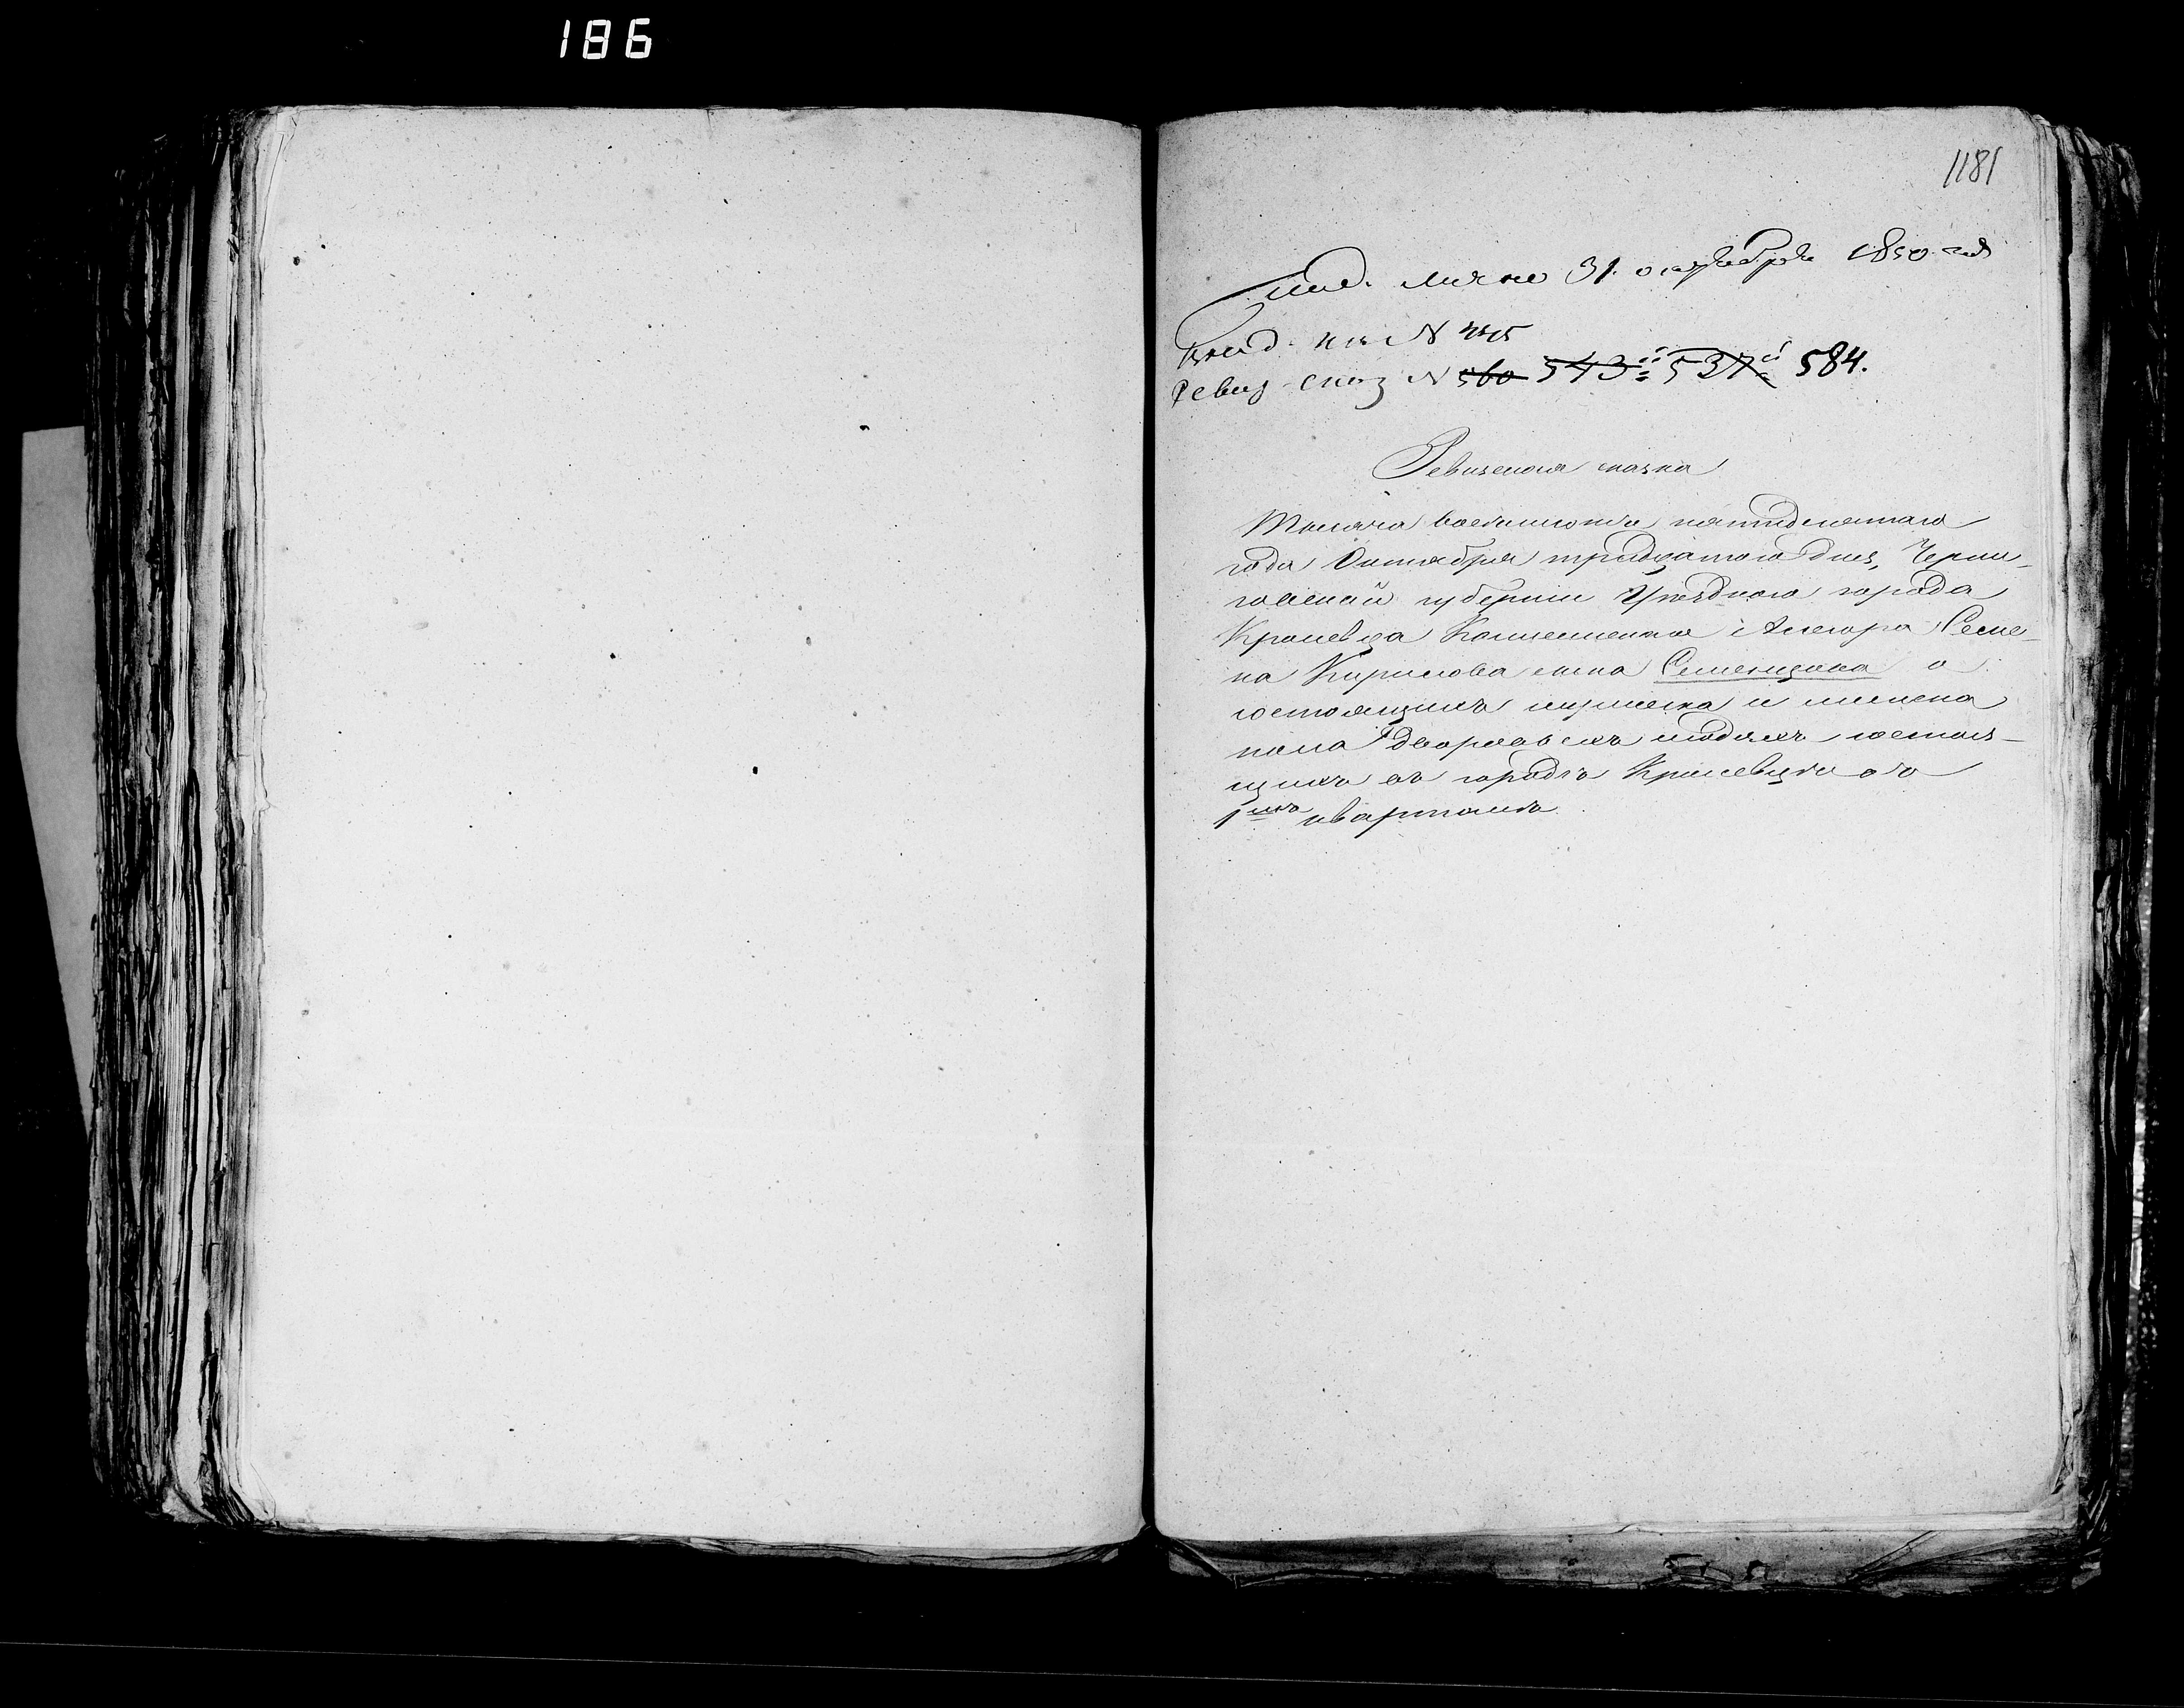 186
1181
Под. лично 31. октября 1850 года
Вход. № 445
Ревиз. Сказ № 560 543 537 584.
Ревизская сказка
Тысяча восемьсотъ пятидесятаго
года Октября тридцатого дня, Черни-
говской губернии Уѣзднаго города
Кролевца Колежскаго Асесора Семе-
на Кирилова сына Семенцова о
состоящихъ мужеска и женска
пола дворовыхъ людяхъ состоя-
щихъ въ городѣ Кролевцѣ въ
1мъ кварталѣ.